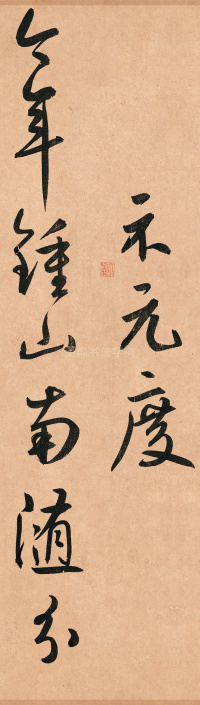 示元度
今年鍾山南随分